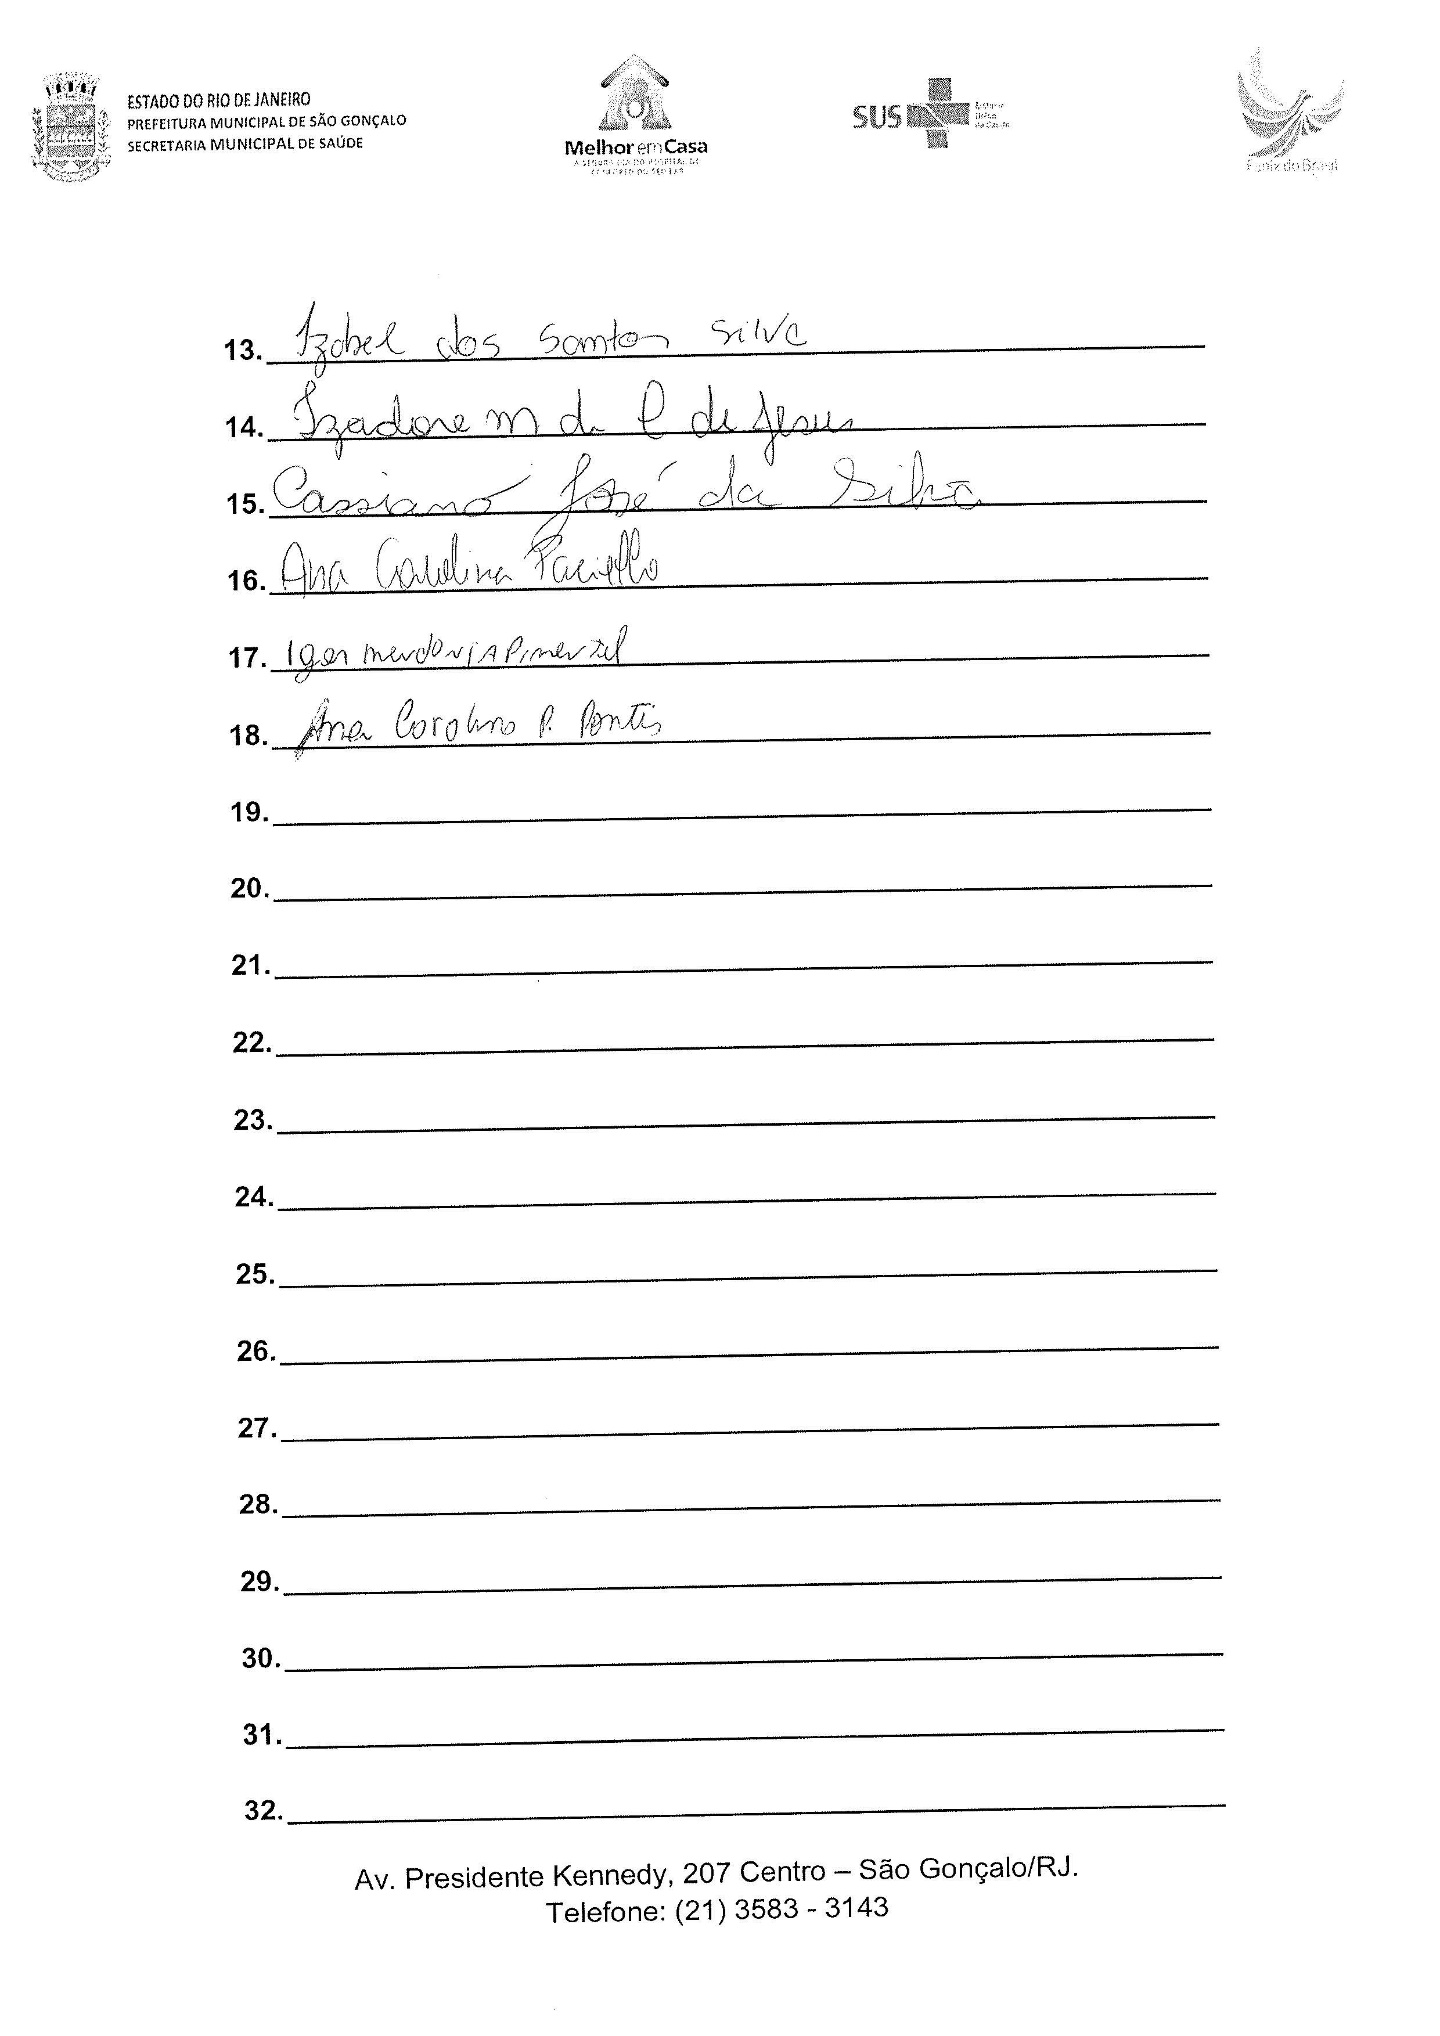 ESTADO DO RIO DE JANEIRO
PREFEITURA MUNICIPAL DE SÃO GONÇALO
SECRETARIA MUNICIPAL DE SAÚDE
Melhor em Casa
A SEGURANÇA DO HOSPITAL NO
CONFORTO DO SEU LAR
SUS
Fenix do Brasil
13. Izabel dos Santos Silva
14. Izadora M da C de Jesus
15. Cassiano José da Silva
16. Ana Carolina Paciello
17. Igor Mendonça Pimentel
18. Ana Carolina P. Pontes
19.
20.
21.
22.
23.
24.
25.
26.
27.
28.
29.
30.
31.
32.
Av. Presidente Kennedy, 207 Centro – São Gonçalo/RJ.
Telefone: (21) 3583 - 3143